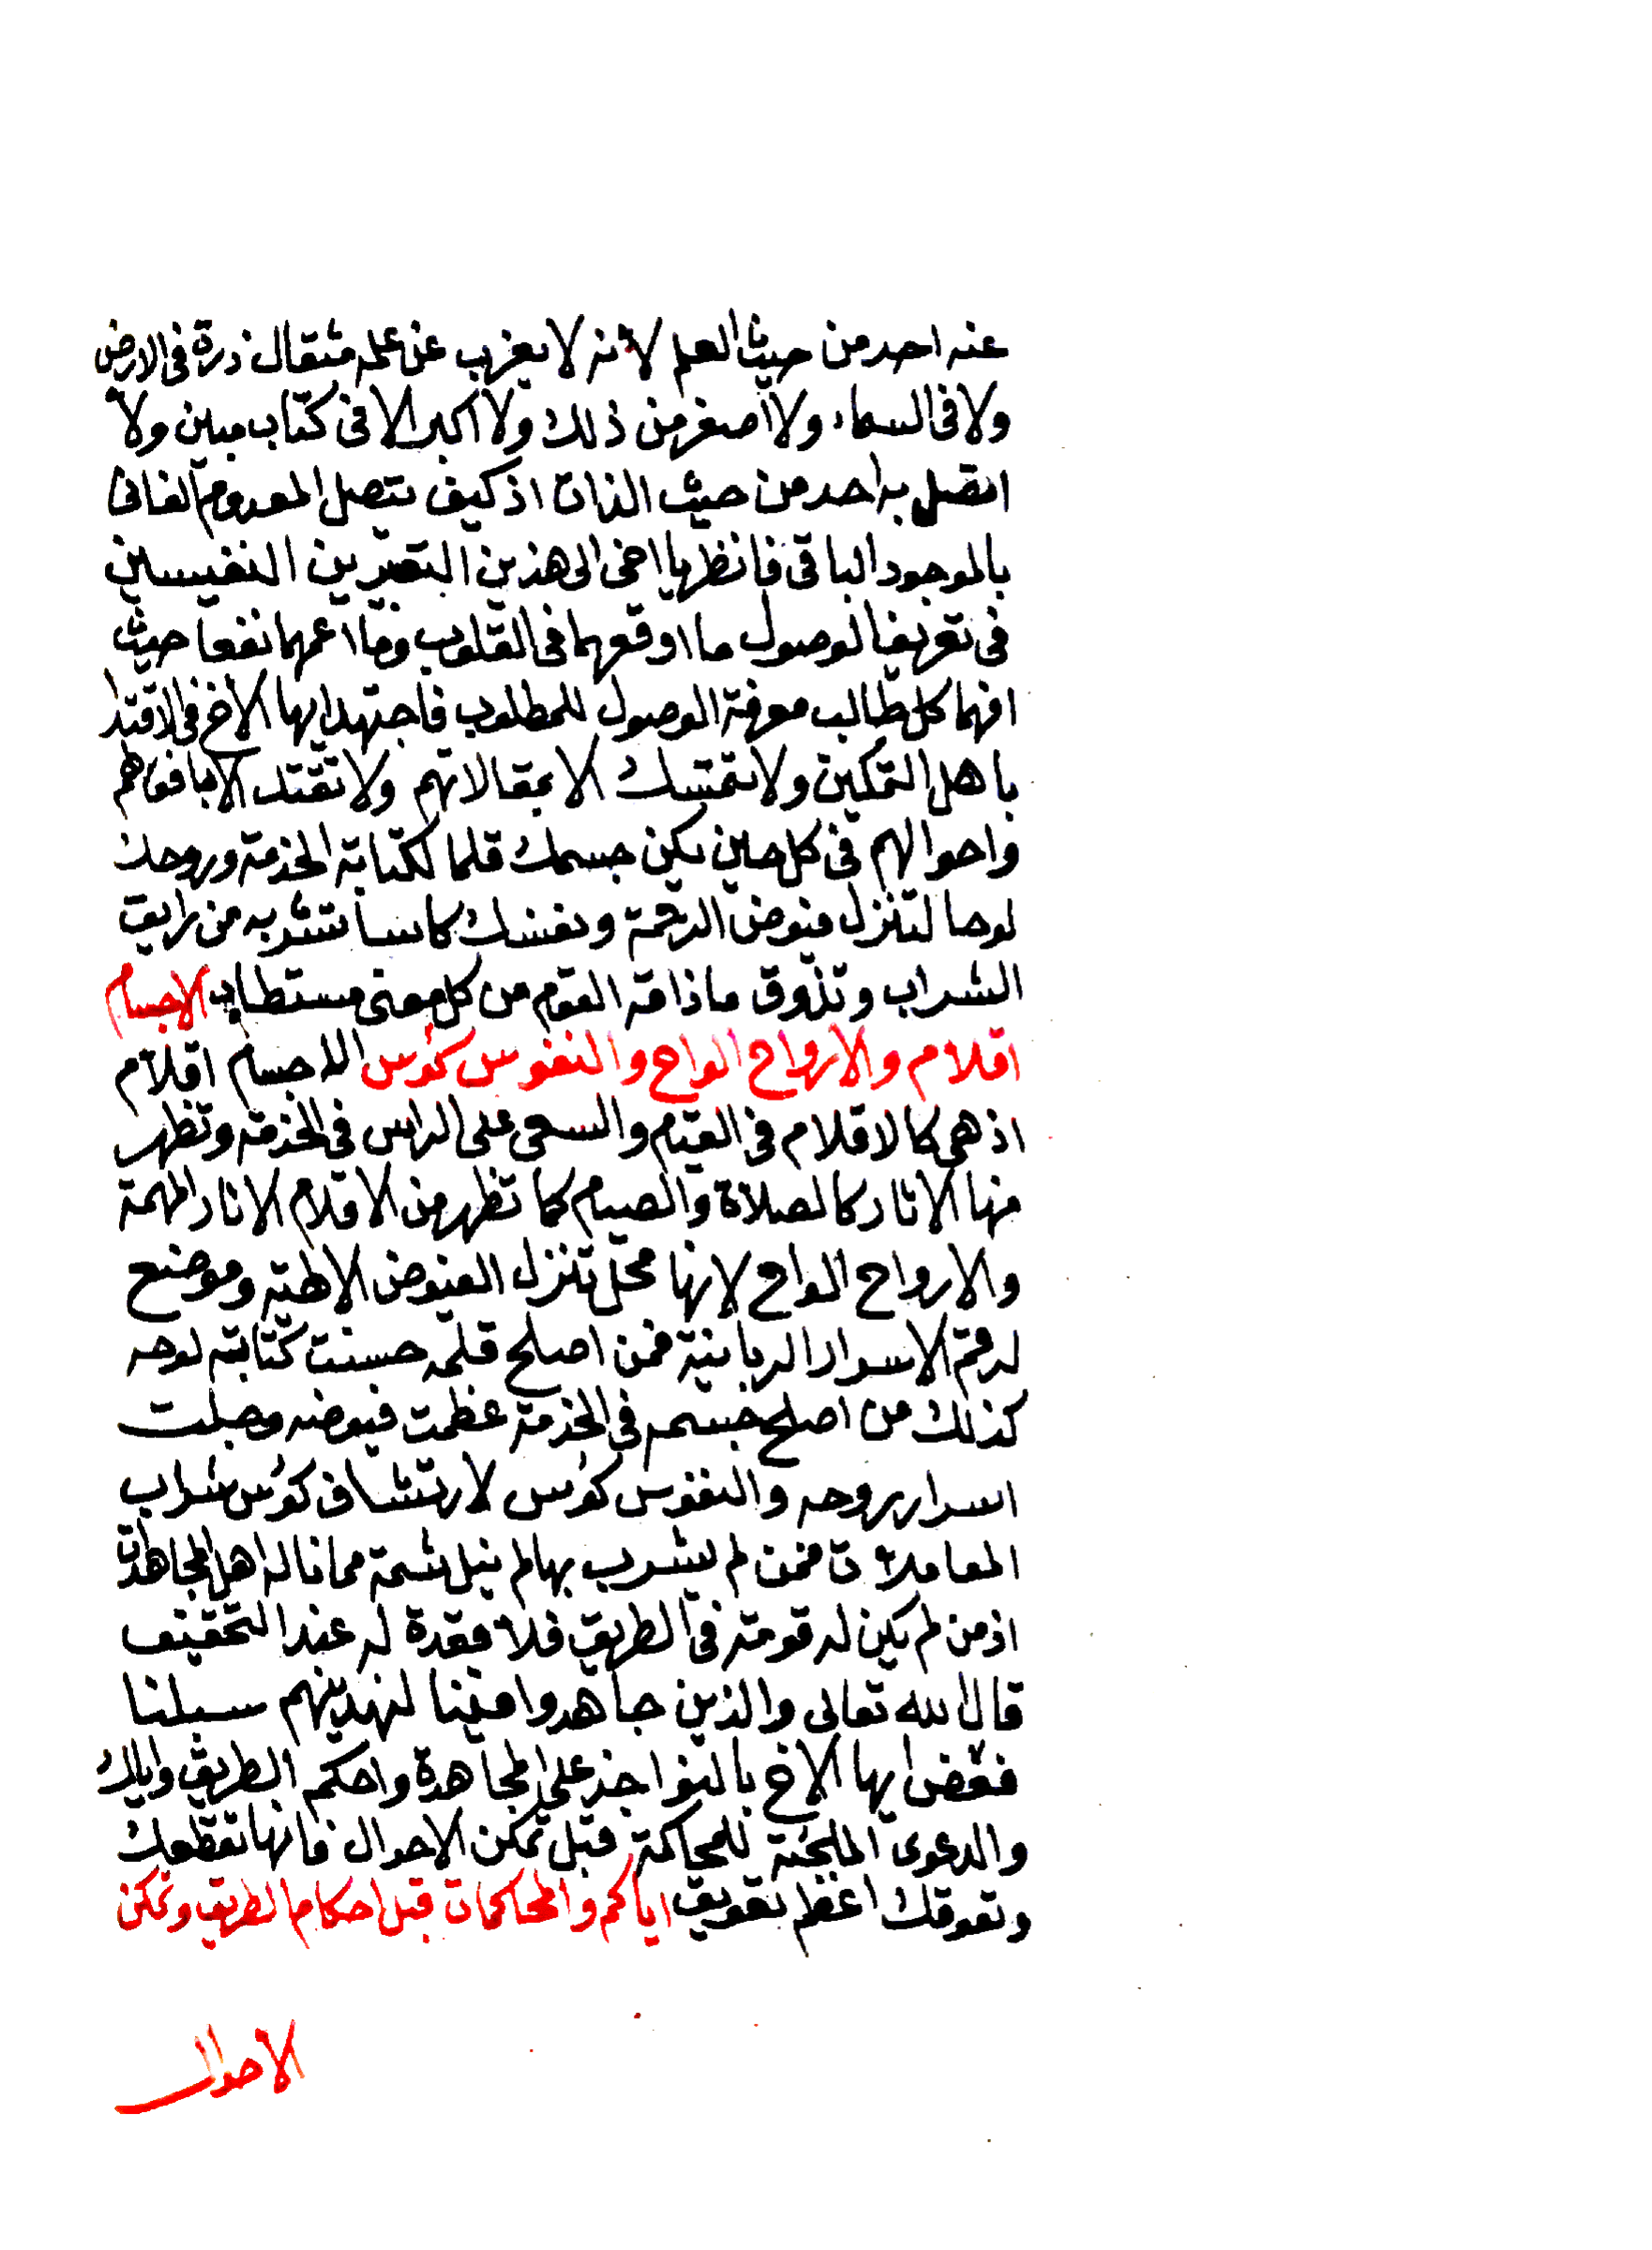 عنه احد من حيث العلم لانه لا يعزب عن علمه مثقال ذرة فى الارض
ولا فى السماء ولا اصغر من ذلك ولا اكبر الا فى كتاب مبين ولا
اتصل به احد من حيث الذات اذ كيف يتصل المعدوم الفانى
بالموجود الباقى فانظر يا اخى الى هذين التعبيرين النفيسين
فى تعريف الوصول ما اوقعهما فى القلوب وما اعمهما نفعا حيث
افهما كل طالب معرفة الوصول للمطلوب فاجتهد ايها الاخ فى الاقتدا
باهل التمكين ولا تتمسك الا بمقالاتهم ولا تقتد الا بافعالهم
واحوالهم فى كل حين يكن جسمك قلما لكتابة الخدمة وروحك
لوحا لتنزل فيوض الرحمة ونفسك كاسا تشربه من رايق
الشراب وتذوق ما ذاقه القوم من كل معنى مستطاب الاجسام
اقلام والارواح الواح والنفوس كوس الاجسام اقلام
اذ هى كالاقلام فى القيام والسعى على الراس فى الخدمة وتظهر
منها الاثار كالصلاة والصيام كما تظهر من الاقلام الاثار المهمة
والارواح الواح لانها محل تنزل الفيوض الالهية وموضع
لرقم الاسرار الربانية فمن اصلح قلمه حسنت كتابة لوحه
كذلك من اصلح جسمه فى الخدمة عظمت فيوضه وجلت
اسرار روحه والنفوس كوس لارتشاف كوس شراب
المعاملات فمن لم يشرب بها لم ينل شمة مما ناله اهل المجاهدات
اذ من لم يكن له قومة فى الطريق فلا قعدة له عند التحقيق
قال الله تعالى والذين جاهدوا فينا لنهدينهم سبلنا
فعض ايها الاخ بالنواجذ على المجاهدة واحكم الطريق واياك
والدعوى الملجئة للمحاكمة قبل تمكن الاحوال فانها تقطعك
وتعوقك اعظم تعويق اياكم والمحاكمات قبل احكام الطريق وتمكن
الاحوال